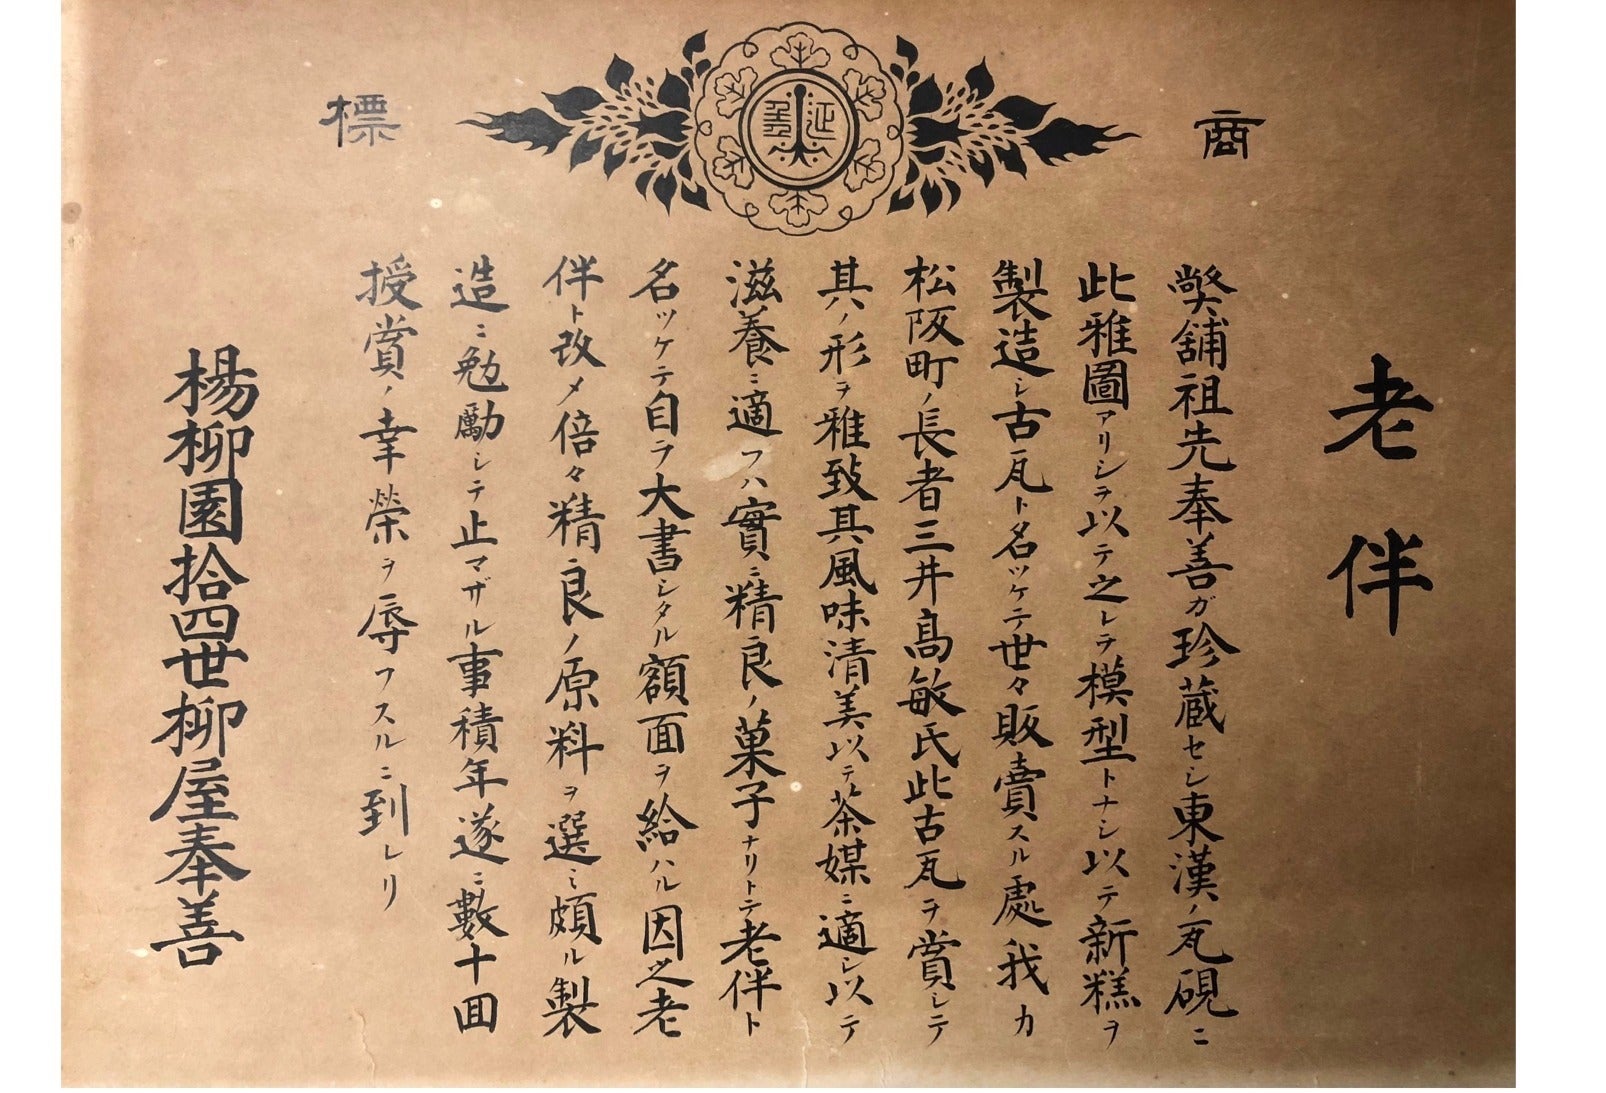 商標
延
老伴
獘舗祖先奉善ガ珍蔵セシ東漢ノ瓦硯ニ
此雅圖アリシヲ以テ之レヲ模型トナシ以テ新糕ヲ
製造シ古瓦ト名ツケテ世々販賣スル處我カ
松阪町ノ長者三井髙敏氏此古瓦ヲ賞シテ
其ノ形ヲ雅致其風味清美以テ茶媒ニ適シ以テ
滋養ニ適フハ實ニ精良ノ菓子ナリトテ老伴ト
名ツケテ自ラ大書シタル額面ヲ給ハル因之老
伴ト改メ倍々精良ノ原料ヲ選ミ頗ル製
造ニ勉勵シテ止マザル事積年遂ニ數十回
授賞ノ幸榮ヲ辱フスルニ到レリ
楊柳園拾四世柳屋奉善